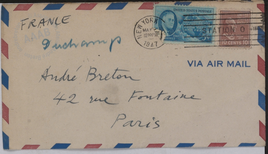 FRANCE
Duchamp
NEW YORK
1947
STATION O
VIA AIR MAIL
André Breton
42 rue Fontaine
Paris